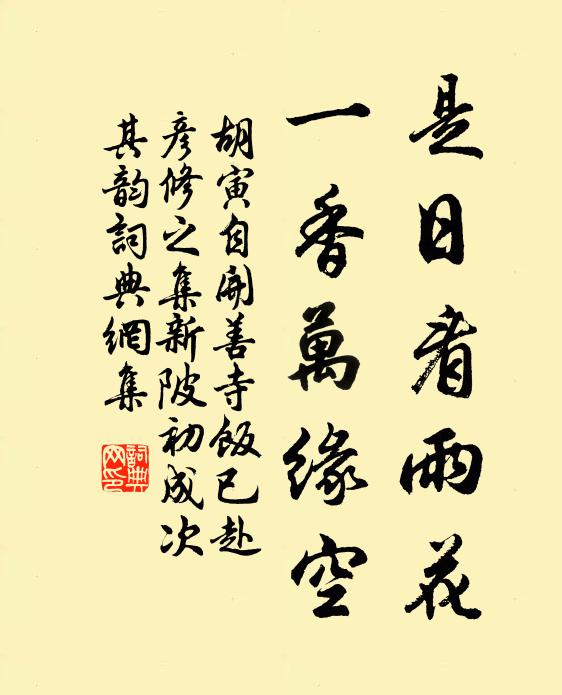 是日看雨花
一香萬緣空
胡寅自開善寺飯已赴
彥修之集新陂初成次
其韵詞典網集
詞典
网印